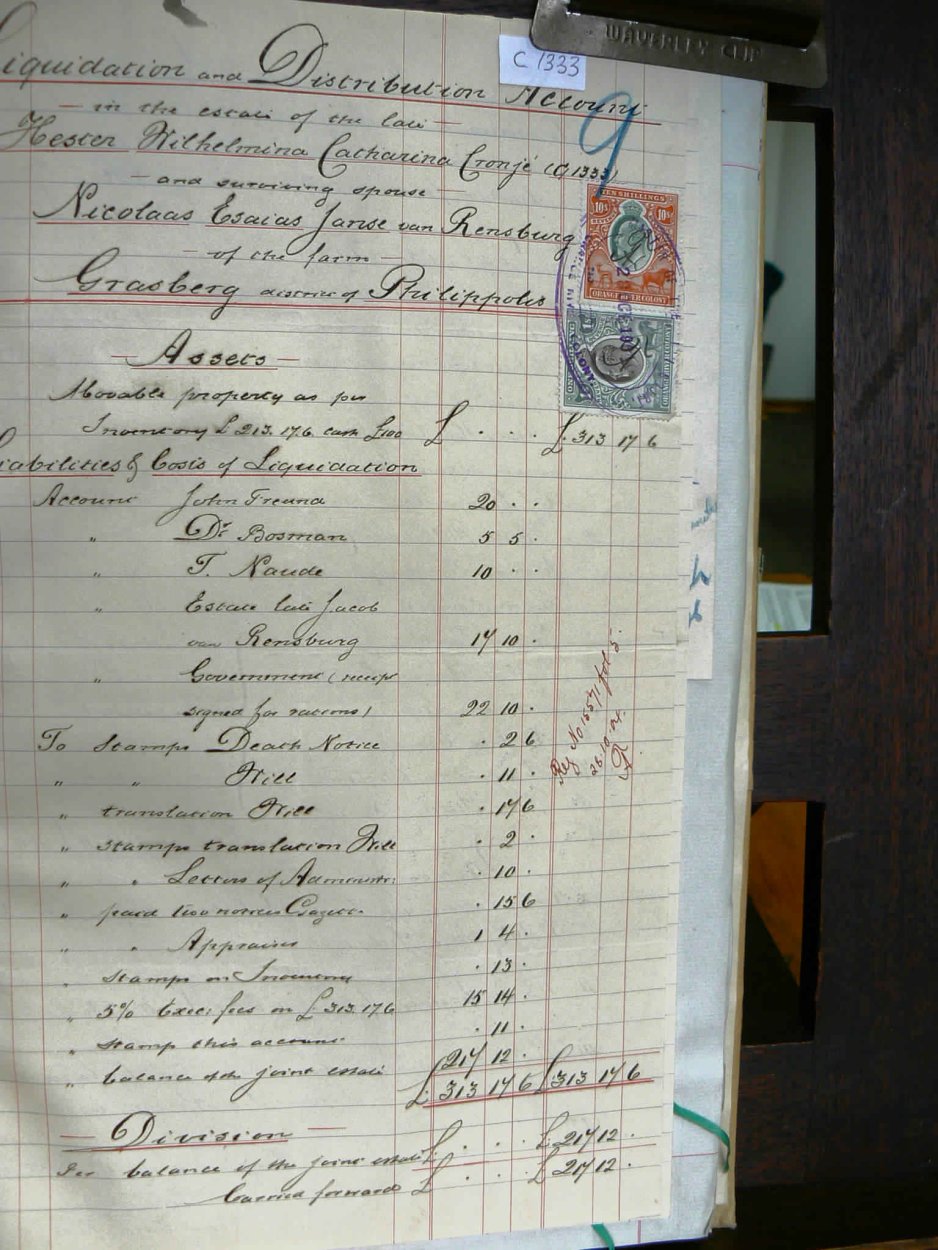 WAVERLEY CLIP
C 1333
Liquidation and Distribution Account
9
— in the estate of the late —
Hester Wilhelmina Catharina Cronjé (C1333)
— and surviving spouse —
Nicolaas Esaias Janse van Rensburg
— of the farm —
Grasberg district of Philippolis
TEN SHILLINGS
10s 10s
ORANGE RIVER COLONY
— Assets —
Movable property as per
Inventory £213.17.6. cash £100 £ . . . £ 313 17 6
Liabilities & Costs of Liquidation
Account John Freund 20 . .
" Dr Bosman 5 5 .
" T. Naude 10 . .
" Estate late Jacob
van Rensburg 17 10 .
" Government (receipt
signed for rations) 22 10 .
To Stamps Death Notice . 2 6
" " Will . 11 .
" translation Will . 17 6
" stamps translation Will . 2 .
" " Letters of Administr: . 10 .
" paid two notices Gazette . 15 6
" " Appraiser 1 4 .
" Stamps on Inventory . 13 .
" 5% Exec: fees on £313.17.6 15 14 .
" Stamp this account . 11 .
" balance of the joint estate 217 12 .
£ 313 17 6 £ 313 17 6
Reg No 15571 fol 5.
— Division —
Per balance of the joint estate £ . . . £ 217 12 .
Carried forward £ . . . £ 217 12 .